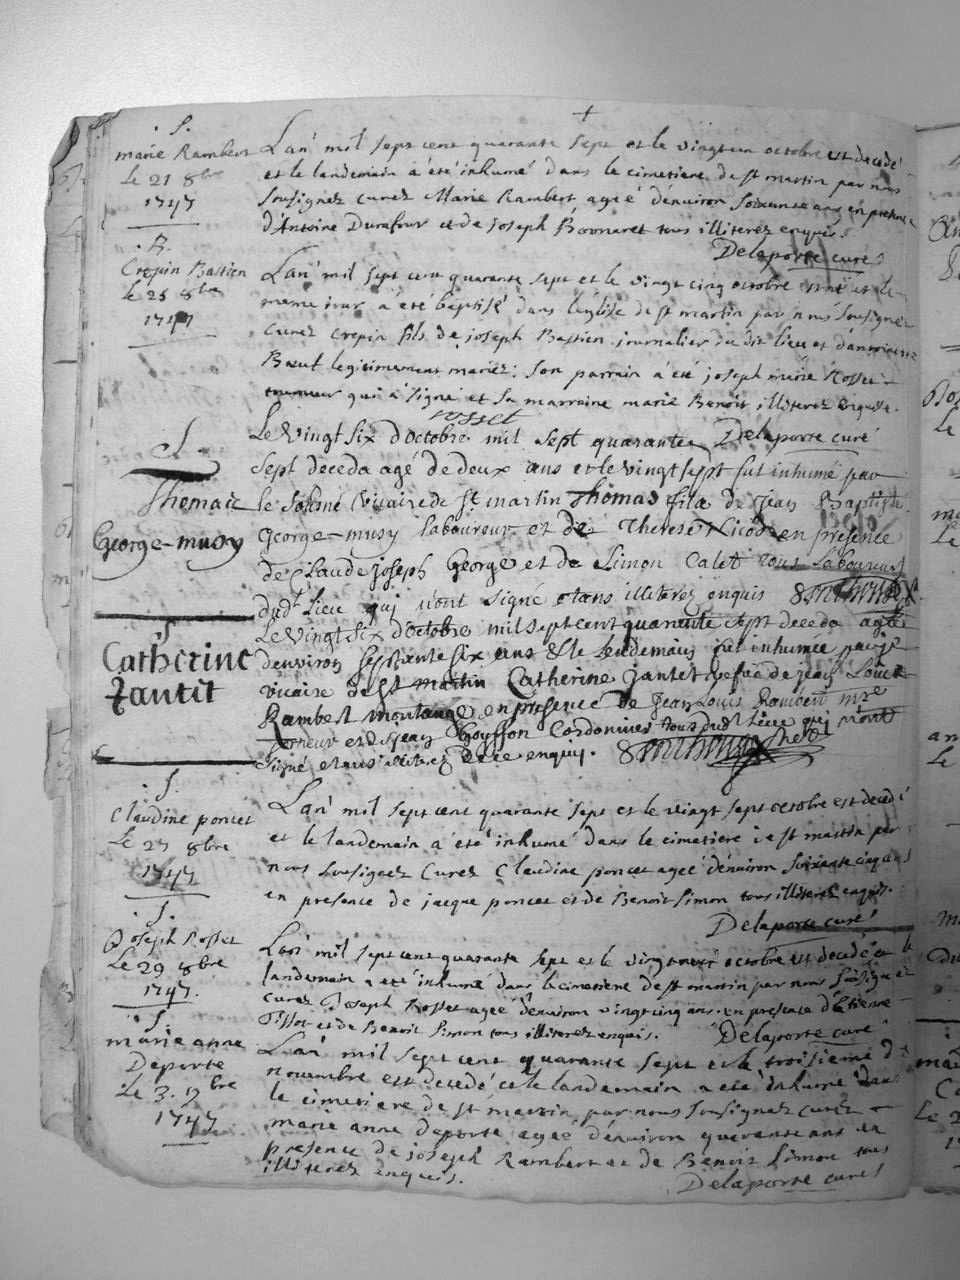 +
. S.
marie Rambert
Le 21 8bre
1747
Lan mil sept cent quarante sept et le vingtun octobre est decedé
et le landemain à été inhumé dans le cimetiere de st martin par nous
sousignez curez Marie Rambert ageé d'environ soixente ans en presence
d'Antoine Durafour et de joseph Bonnaret tous illiterez enquis.
Delaporte curé
. B.
Crepin Bastien
le 25 8bre
1747
Lan mil sept cent quarante sept et le vingt cinq octobre est né et le
meme jour à été baptisé dans l'eglise de st martin par nous sousignez
curez crepin fils de joseph Bastien journalier du dit lieu et d'antoinette
Bœuf legitimement mariez: son parrain à été joseph marie Rosset
tourneur qui à signé et sa marraine marie Benoit illiterez enquise.
rosset
Delaporte curé
S
Thomas
George-musy
Le vingt six d'octobre mil sept quarante
sept deceda agé de deux ans et le vingt sept fut inhumé par
le sousné vicaire de St martin Thomas fils de Jean Baptiste
George-musy laboureur et de Therese Nicod en presence
de Claude joseph George et de Simon Calet tous laboureurs
dudt lieu qui n'ont signé etans illiterez enquis
S
Catherine
Jantet
Le vingt six d'octobre mil sept cent quarante sept deceda agée
denviron septante six ans & le lendemain fut inhumée par je
vicaire de St martin Catherine Jantet vefve de jean Louis
Rambert montange en presence de Jean Louis Rambert mre
et de jean Goyffon Cordonnier tous dudt lieu qui n'ont
signé etans illiterez de ce enquis.
. S.
Claudine poncet
Le 27 8bre
1747
Lan mil sept cent quarante sept et le vingt sept octobre est decedé
et le landemain à été inhumé dans le cimetiere de st martin par
nous sousignez Curez Claudine poncet ageé d'environ soixante cinq ans
en presence de jacque poncet et de Benoit Simon tous illiterez enquis.
Delaporte curé
. S.
Joseph Rosset
Le 29 8bre
1747.
Lan mil sept cent quarante sept et le vingt neuf octobre est decedé et le
landemain a été inhumé dans le cimetiere de st martin par nous sousignez
Curez Joseph Rosset ageé denviron vingt cinq ans en presence d'Etienne
Tissot et de Benoit Simon tous illiterez enquis.
Delaporte curé
. S.
marie anne
Deporte
Le 3. 9bre
1747
Lan mil sept cent quarante sept et le troisieme de
novembre est decedé et le landemain a été inhumé dans
le cimetiere de st martin par nous sousignez curez
marie anne deporte ageé d'environ quarante ans en
presence de joseph Rambert et de Benoit Simon tous
illiterez enquis.
Delaporte curé